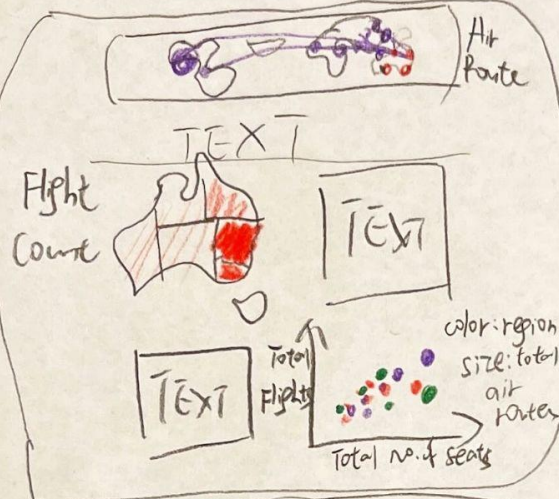 Air
Route
TEXT
Flight
Count
TEXT
TEXT
Total
Flights
color: region
size: total
air
routes
Total no. of seats